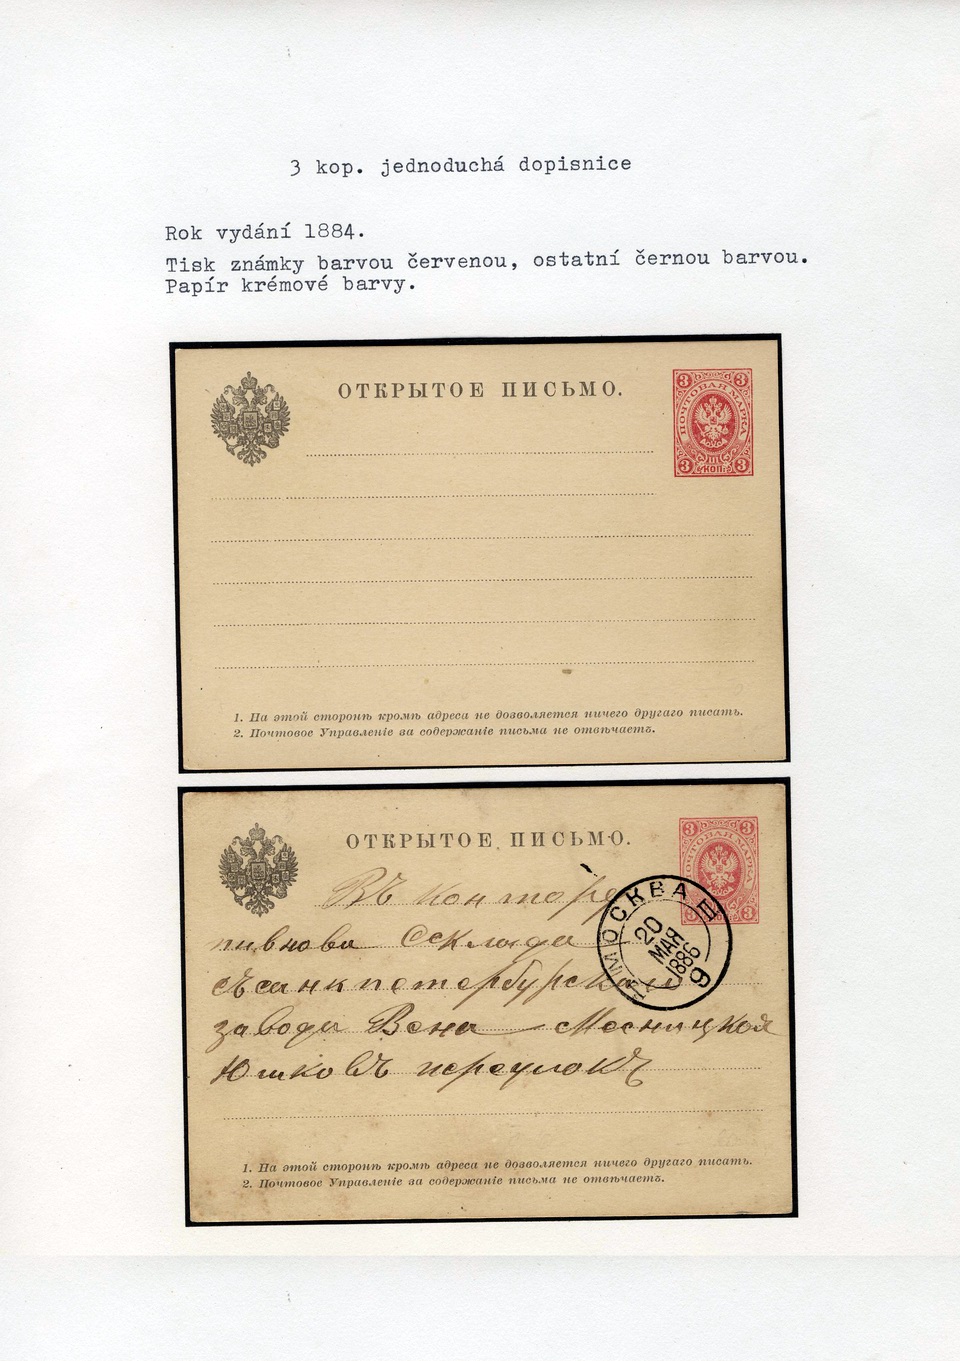 3 kop. jednoduchá dopisnice
Rok vydání 1884.
Tisk známky barvou červenou, ostatní černou barvou.
Papír krémové barvy.
ОТКРЫТОЕ ПИСЬМО.
3 3
ПОЧТОВАЯ МАРКА
3 КОП. 3
1. На этой сторонѣ кромѣ адреса не дозволяется ничего другаго писать.
2. Почтовое Управленіе за содержаніе письма не отвѣчаетъ.
ОТКРЫТОЕ ПИСЬМО.
3 3
ПОЧТОВАЯ МАРКА
3
МОСКВА III
20
МАЯ
1886
9
Въ Контору
пивнова Склада
съ санкпотербурскаго
завода Вена Месницкоя
Юшковъ переулокъ
1. На этой сторонѣ кромѣ адреса не дозволяется ничего другаго писать.
2. Почтовое Управленіе за содержаніе письма не отвѣчаетъ.